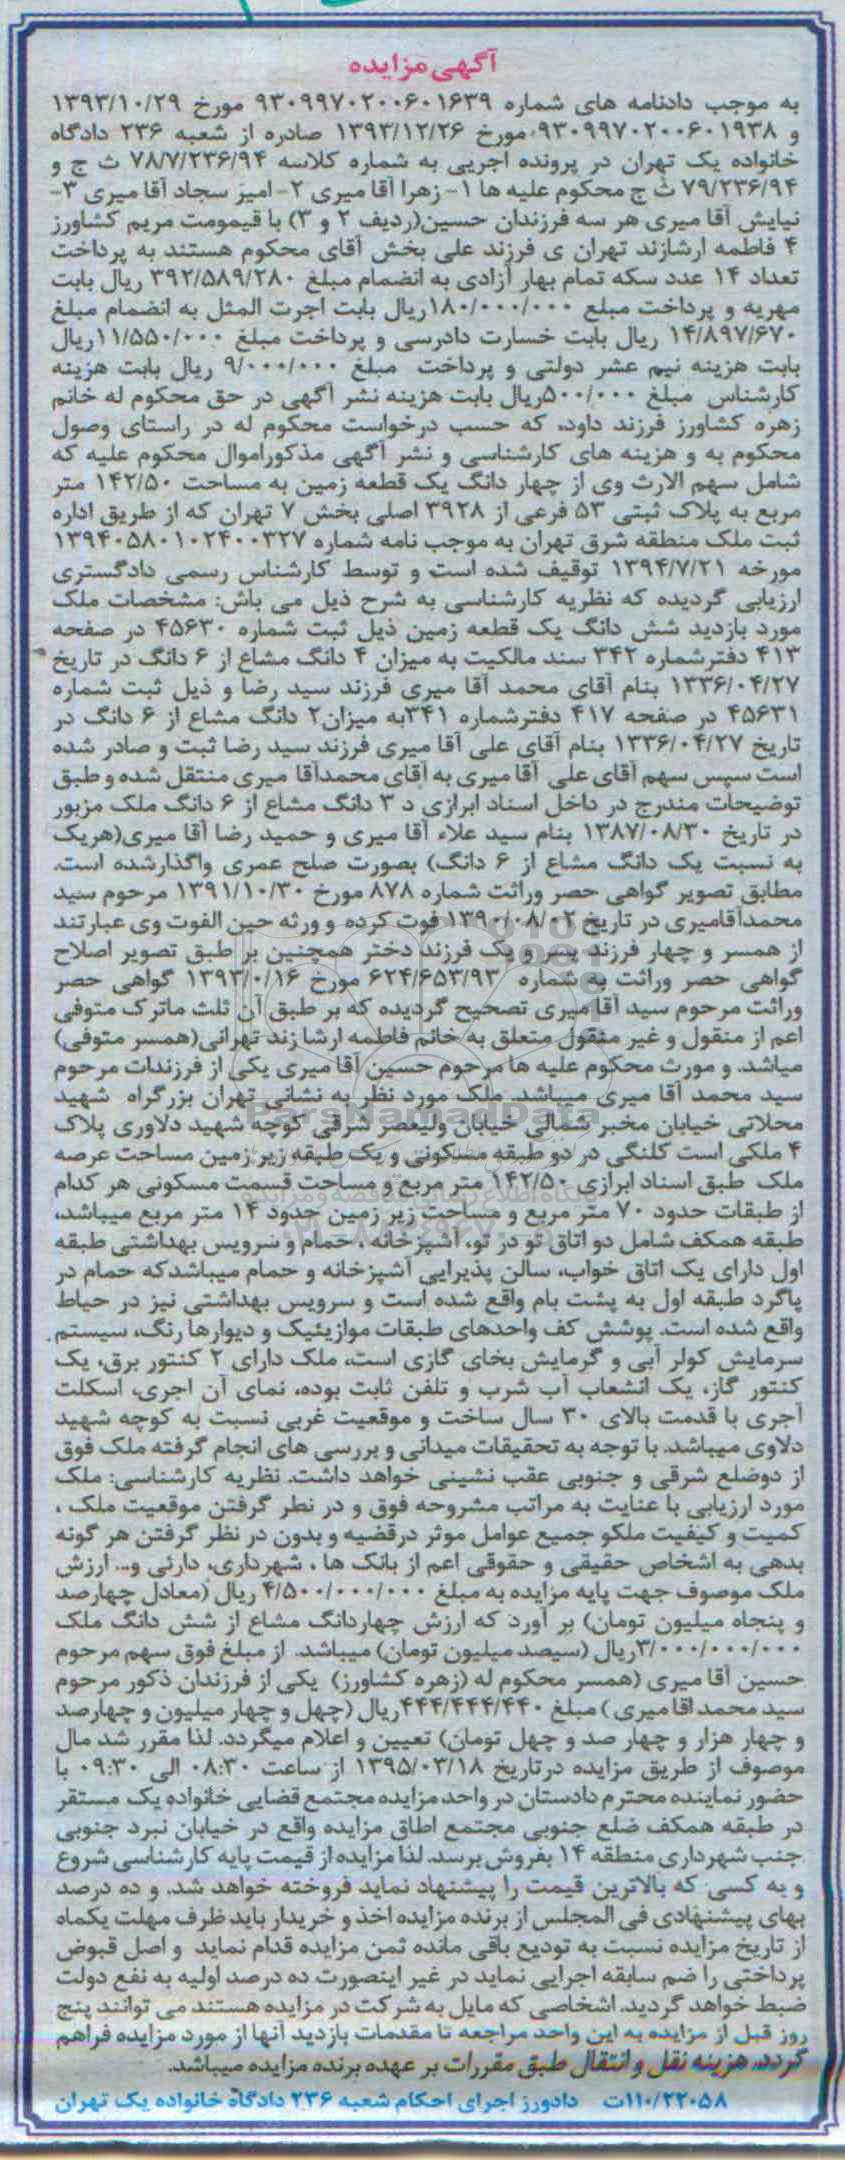 آگهی مزایده
به موجب دادنامه های شماره ۹۳۰۹۹۷۰۲۰۰۶۰۱۶۳۹ مورخ ۱۳۹۳/۱۰/۲۹
و ۹۳۰۹۹۷۰۲۰۰۶۰۱۹۳۸ مورخ ۱۳۹۳/۱۲/۲۶ صادره از شعبه ۲۳۶ دادگاه
خانواده یک تهران در پرونده اجریی به شماره کلاسه ۷۸/۷/۲۳۶/۹۴ ث ج و
۷۹/۲۳۶/۹۴ ث ج محکوم علیه ها ۱- زهرا آقا میری ۲- امیر سجاد آقا میری ۳-
نیایش آقا میری هر سه فرزندان حسین(ردیف ۲ و ۳) با قیمومت مریم کشاورز
۴ فاطمه ارشازند تهران ی فرزند علی بخش آقای محکوم هستند به پرداخت
تعداد ۱۴ عدد سکه تمام بهار آزادی به انضمام مبلغ ۳۹۲/۵۸۹/۲۸۰ ریال بابت
مهریه و پرداخت مبلغ ۱۸۰/۰۰۰/۰۰۰ریال بابت اجرت المثل به انضمام مبلغ
۱۴/۸۹۷/۶۷۰ ریال بابت خسارت دادرسی و پرداخت مبلغ ۱۱/۵۵۰/۰۰۰ریال
بابت هزینه نیم عشر دولتی و پرداخت مبلغ ۹/۰۰۰/۰۰۰ ریال بابت هزینه
کارشناس مبلغ ۵۰۰/۰۰۰ریال بابت هزینه نشر آگهی در حق محکوم له خانم
زهره کشاورز فرزند داود، که حسب درخواست محکوم له در راستای وصول
محکوم به و هزینه های کارشناسی و نشر آگهی مذکوراموال محکوم علیه که
شامل سهم الارث وی از چهار دانگ یک قطعه زمین به مساحت ۱۴۲/۵۰ متر
مربع به پلاک ثبتی ۵۳ فرعی از ۳۹۲۸ اصلی بخش ۷ تهران که از طریق اداره
ثبت ملک منطقه شرق تهران به موجب نامه شماره ۱۳۹۴۰۵۸۰۱۰۲۴۰۰۳۲۷
مورخه ۱۳۹۴/۷/۲۱ توقیف شده است و توسط کارشناس رسمی دادگستری
ارزیابی گردیده که نظریه کارشناسی به شرح ذیل می باش: مشخصات ملک
مورد بازدید شش دانگ یک قطعه زمین ذیل ثبت شماره ۴۵۶۳۰ در صفحه
۴۱۳ دفترشماره ۳۴۲ سند مالکیت به میزان ۴ دانگ مشاع از ۶ دانگ در تاریخ
۱۳۳۶/۰۴/۲۷ بنام آقای محمد آقا میری فرزند سید رضا و ذیل ثبت شماره
۴۵۶۳۱ در صفحه ۴۱۷ دفترشماره ۳۴۱به میزان۲ دانگ مشاع از ۶ دانگ در
تاریخ ۱۳۳۶/۰۴/۲۷ بنام آقای علی آقا میری فرزند سید رضا ثبت و صادر شده
است سپس سهم آقای علی آقا میری به آقای محمدآقا میری منتقل شده و طبق
توضیحات مندرج در داخل اسناد ابرازی د ۳ دانگ مشاع از ۶ دانگ ملک مزبور
در تاریخ ۱۳۸۷/۰۸/۳۰ بنام سید علاء آقا میری و حمید رضا آقا میری(هریک
به نسبت یک دانگ مشاع از ۶ دانگ) بصورت صلح عمری واگذارشده است.
مطابق تصویر گواهی حصر وراثت شماره ۸۷۸ مورخ ۱۳۹۱/۱۰/۳۰ مرحوم سید
محمدآقامیری در تاریخ ۱۳۹۰/۰۸/۰۲ فوت کرده و ورثه حین الفوت وی عبارتند
از همسر و چهار فرزند پسر و یک فرزند دختر همچنین بر طبق تصویر اصلاح
گواهی حصر وراثت به شماره ۶۲۴/۶۵۳/۹۳ مورخ ۱۳۹۳/۰/۱۶ گواهی حصر
وراثت مرحوم سید آقا میری تصحیح گردیده که بر طبق آن ثلث ماترک متوفی
اعم از منقول و غیر منقول متعلق به خانم فاطمه ارشا زند تهرانی(همسر متوفی)
میاشد. و مورث محکوم علیه ها مرحوم حسین آقا میری یکی از فرزندات مرحوم
سید محمد آقا میری میباشد. ملک مورد نظر به نشانی تهران بزرگراه شهید
محلاتی خیابان مخبر شمالی خیابان ولیعصر شرقی کوچه شهید دلاوری پلاک
۴ ملکی است کلنگی در دو طبقه مسکونی و یک طبقه زیر زمین مساحت عرصه
ملک طبق اسناد ابرازی ۱۴۲/۵۰ متر مربع و مساحت قسمت مسکونی هر کدام
از طبقات حدود ۷۰ متر مربع و مساحت زیر زمین حدود ۱۴ متر مربع میباشد،
طبقه همکف شامل دو اتاق تو در تو، آشپزخانه ، حمام و سرویس بهداشتی طبقه
اول دارای یک اتاق خواب، سالن پذیرایی آشپزخانه و حمام میباشدکه حمام در
پاگرد طبقه اول به پشت بام واقع شده است و سرویس بهداشتی نیز در حیاط
واقع شده است. پوشش کف واحدهای طبقات موازیئیک و دیوارها رنگ، سیستم
سرمایش کولر آبی و گرمایش بخای گازی است، ملک دارای ۲ کنتور برق، یک
کنتور گاز، یک انشعاب آب شرب و تلفن ثابت بوده، نمای آن اجری، اسکلت
آجری با قدمت بالای ۳۰ سال ساخت و موقعیت غربی نسبت به کوچه شهید
دلاوی میباشد. با توجه به تحقیقات میدانی و بررسی های انجام گرفته ملک فوق
از دوضلع شرقی و جنوبی عقب نشینی خواهد داشت. نظریه کارشناسی: ملک
مورد ارزیابی با عنایت به مراتب مشروحه فوق و در نطر گرفتن موقعیت ملک ،
کمیت و کیفیت ملکو جمیع عوامل موثر درقضیه و بدون در نظر گرفتن هر گونه
بدهی به اشخاص حقیقی و حقوقی اعم از بانک ها ، شهرداری، دارئی و... ارزش
ملک موصوف جهت پایه مزایده به مبلغ ۴/۵۰۰/۰۰۰/۰۰۰ ریال (معادل چهارصد
و پنجاه میلیون تومان) بر آورد که ارزش چهاردانگ مشاع از شش دانگ ملک
۳/۰۰۰/۰۰۰/۰۰۰ریال (سیصد میلیون تومان) میباشد. از مبلغ فوق سهم مرحوم
حسین آقا میری (همسر محکوم له (زهره کشاورز) یکی از فرزندان ذکور مرحوم
سید محمد اقا میری ) مبلغ ۴۴۴/۴۴۴/۴۴۰ریال (چهل و چهار میلیون و چهارصد
و چهار هزار و چهار صد و چهل تومان) تعیین و اعلام میگردد. لذا مقرر شد مال
موصوف از طریق مزایده درتاریخ ۱۳۹۵/۰۳/۱۸ از ساعت ۰۸:۳۰ الی ۰۹:۳۰ با
حضور نماینده محترم دادستان در واحد مزایده مجتمع قضایی خانواده یک مستقر
در طبقه همکف ضلع جنوبی مجتمع اطاق مزایده واقع در خیابان نبرد جنوبی
جنب شهرداری منطقه ۱۴ بفروش برسد. لذا مزایده از قیمت پایه کارشناسی شروع
و به کسی که بالاترین قیمت را پیشنهاد نماید فروخته خواهد شد. و ده درصد
بهای پیشنهادی فی المجلس از برنده مزایده اخذ و خریدار باید ظرف مهلت یکماه
از تاریخ مزایده نسبت به تودیع باقی مانده ثمن مزایده قدام نماید و اصل قبوض
پرداختی را ضم سابقه اجرایی نماید در غیر اینصورت ده درصد اولیه به نفع دولت
ضبط خواهد گردید. اشخاصی که مایل به شرکت در مزایده هستند می توانند پنج
روز قبل از مزایده به این واحد مراجعه تا مقدمات بازدید آنها از مورد مزایده فراهم
گردد. هزینه نقل و انتقال طبق مقررات بر عهده برنده مزایده میباشد.
۱۱۰/۲۲۰۵۸ت دادورز اجرای احکام شعبه ۲۳۶ دادگاه خانواده یک تهران
ParsNamadData